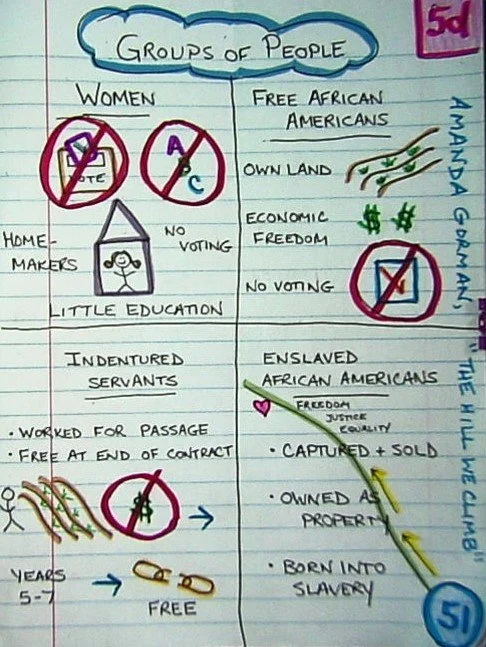 5d
GROUPS OF PEOPLE
WOMEN
VOTE
A
B
C
HOME-
MAKERS
NO
VOTING
LITTLE EDUCATION
FREE AFRICAN
AMERICANS
OWN LAND
ECONOMIC
FREEDOM
$ $
NO VOTING
INDENTURED
SERVANTS
• WORKED FOR PASSAGE
• FREE AT END OF CONTRACT
$
YEARS
5-7
FREE
ENSLAVED
AFRICAN AMERICANS
FREEDOM
JUSTICE
EQUALITY
• CAPTURED + SOLD
• OWNED AS
PROPERTY
• BORN INTO
SLAVERY
AMANDA GORMAN, "THE HILL WE CLIMB"
51